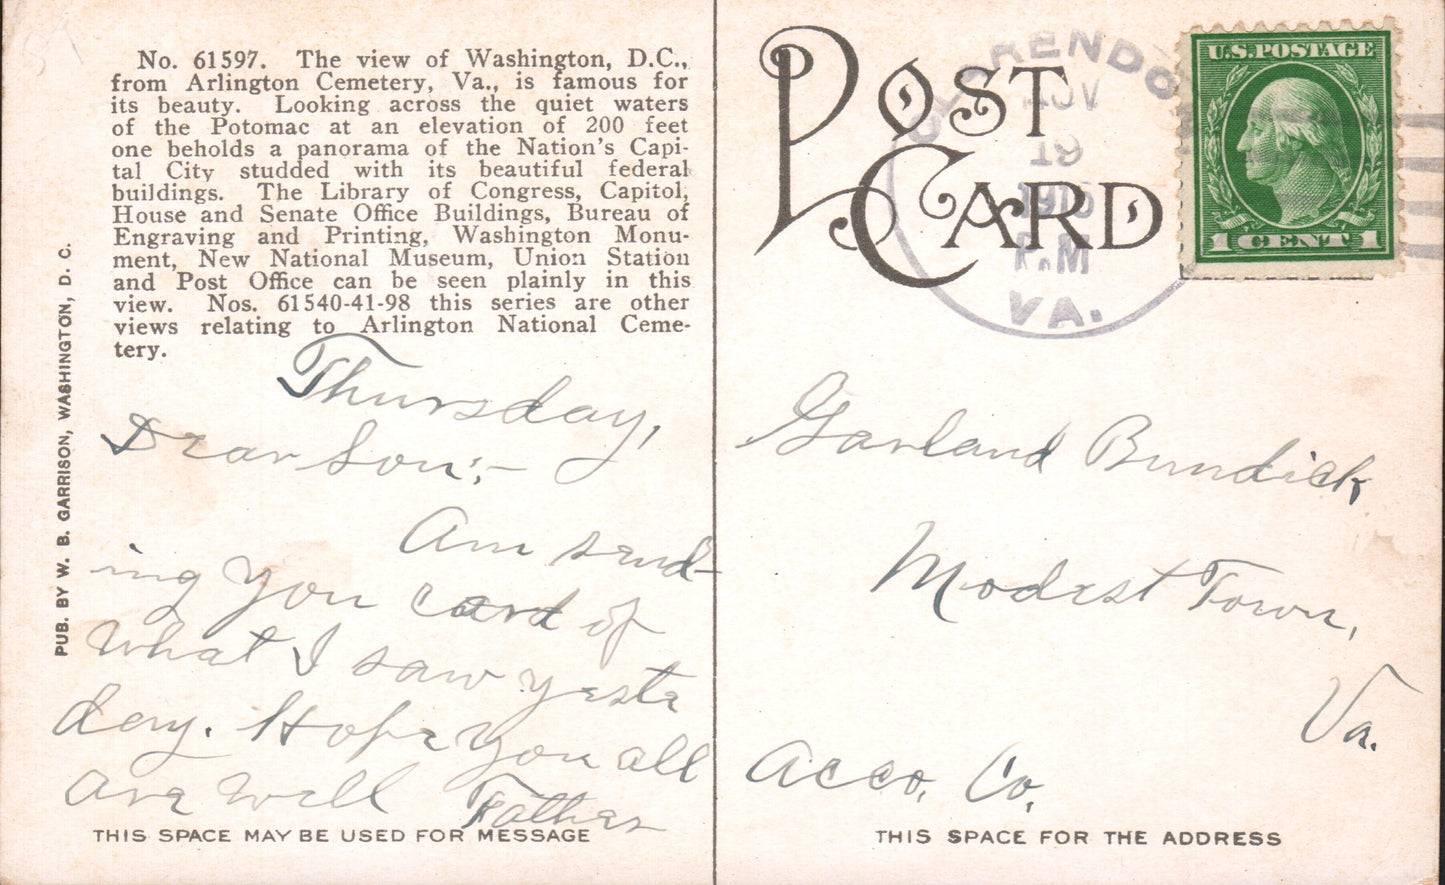 No. 61597. The view of Washington, D.C.,
from Arlington Cemetery, Va., is famous for
its beauty. Looking across the quiet waters
of the Potomac at an elevation of 200 feet
one beholds a panorama of the Nation's Capi-
tal City studded with its beautiful federal
buildings. The Library of Congress, Capitol,
House and Senate Office Buildings, Bureau of
Engraving and Printing, Washington Monu-
ment, New National Museum, Union Station
and Post Office can be seen plainly in this
view. Nos. 61540-41-98 this series are other
views relating to Arlington National Ceme-
tery.
PUB. BY W. B. GARRISON, WASHINGTON, D. C.
Thursday,
Dear Son:-
Am send-
ing you card of
what I saw yester
day. Hope you all
are well Father
THIS SPACE MAY BE USED FOR MESSAGE
POST
CARD
CLARENDON
NOV
19
P.M
VA.
U.S. POSTAGE
1 CENT 1
Garland Bundick
Modest Town,
Va.
Acco. Co.
THIS SPACE FOR THE ADDRESS